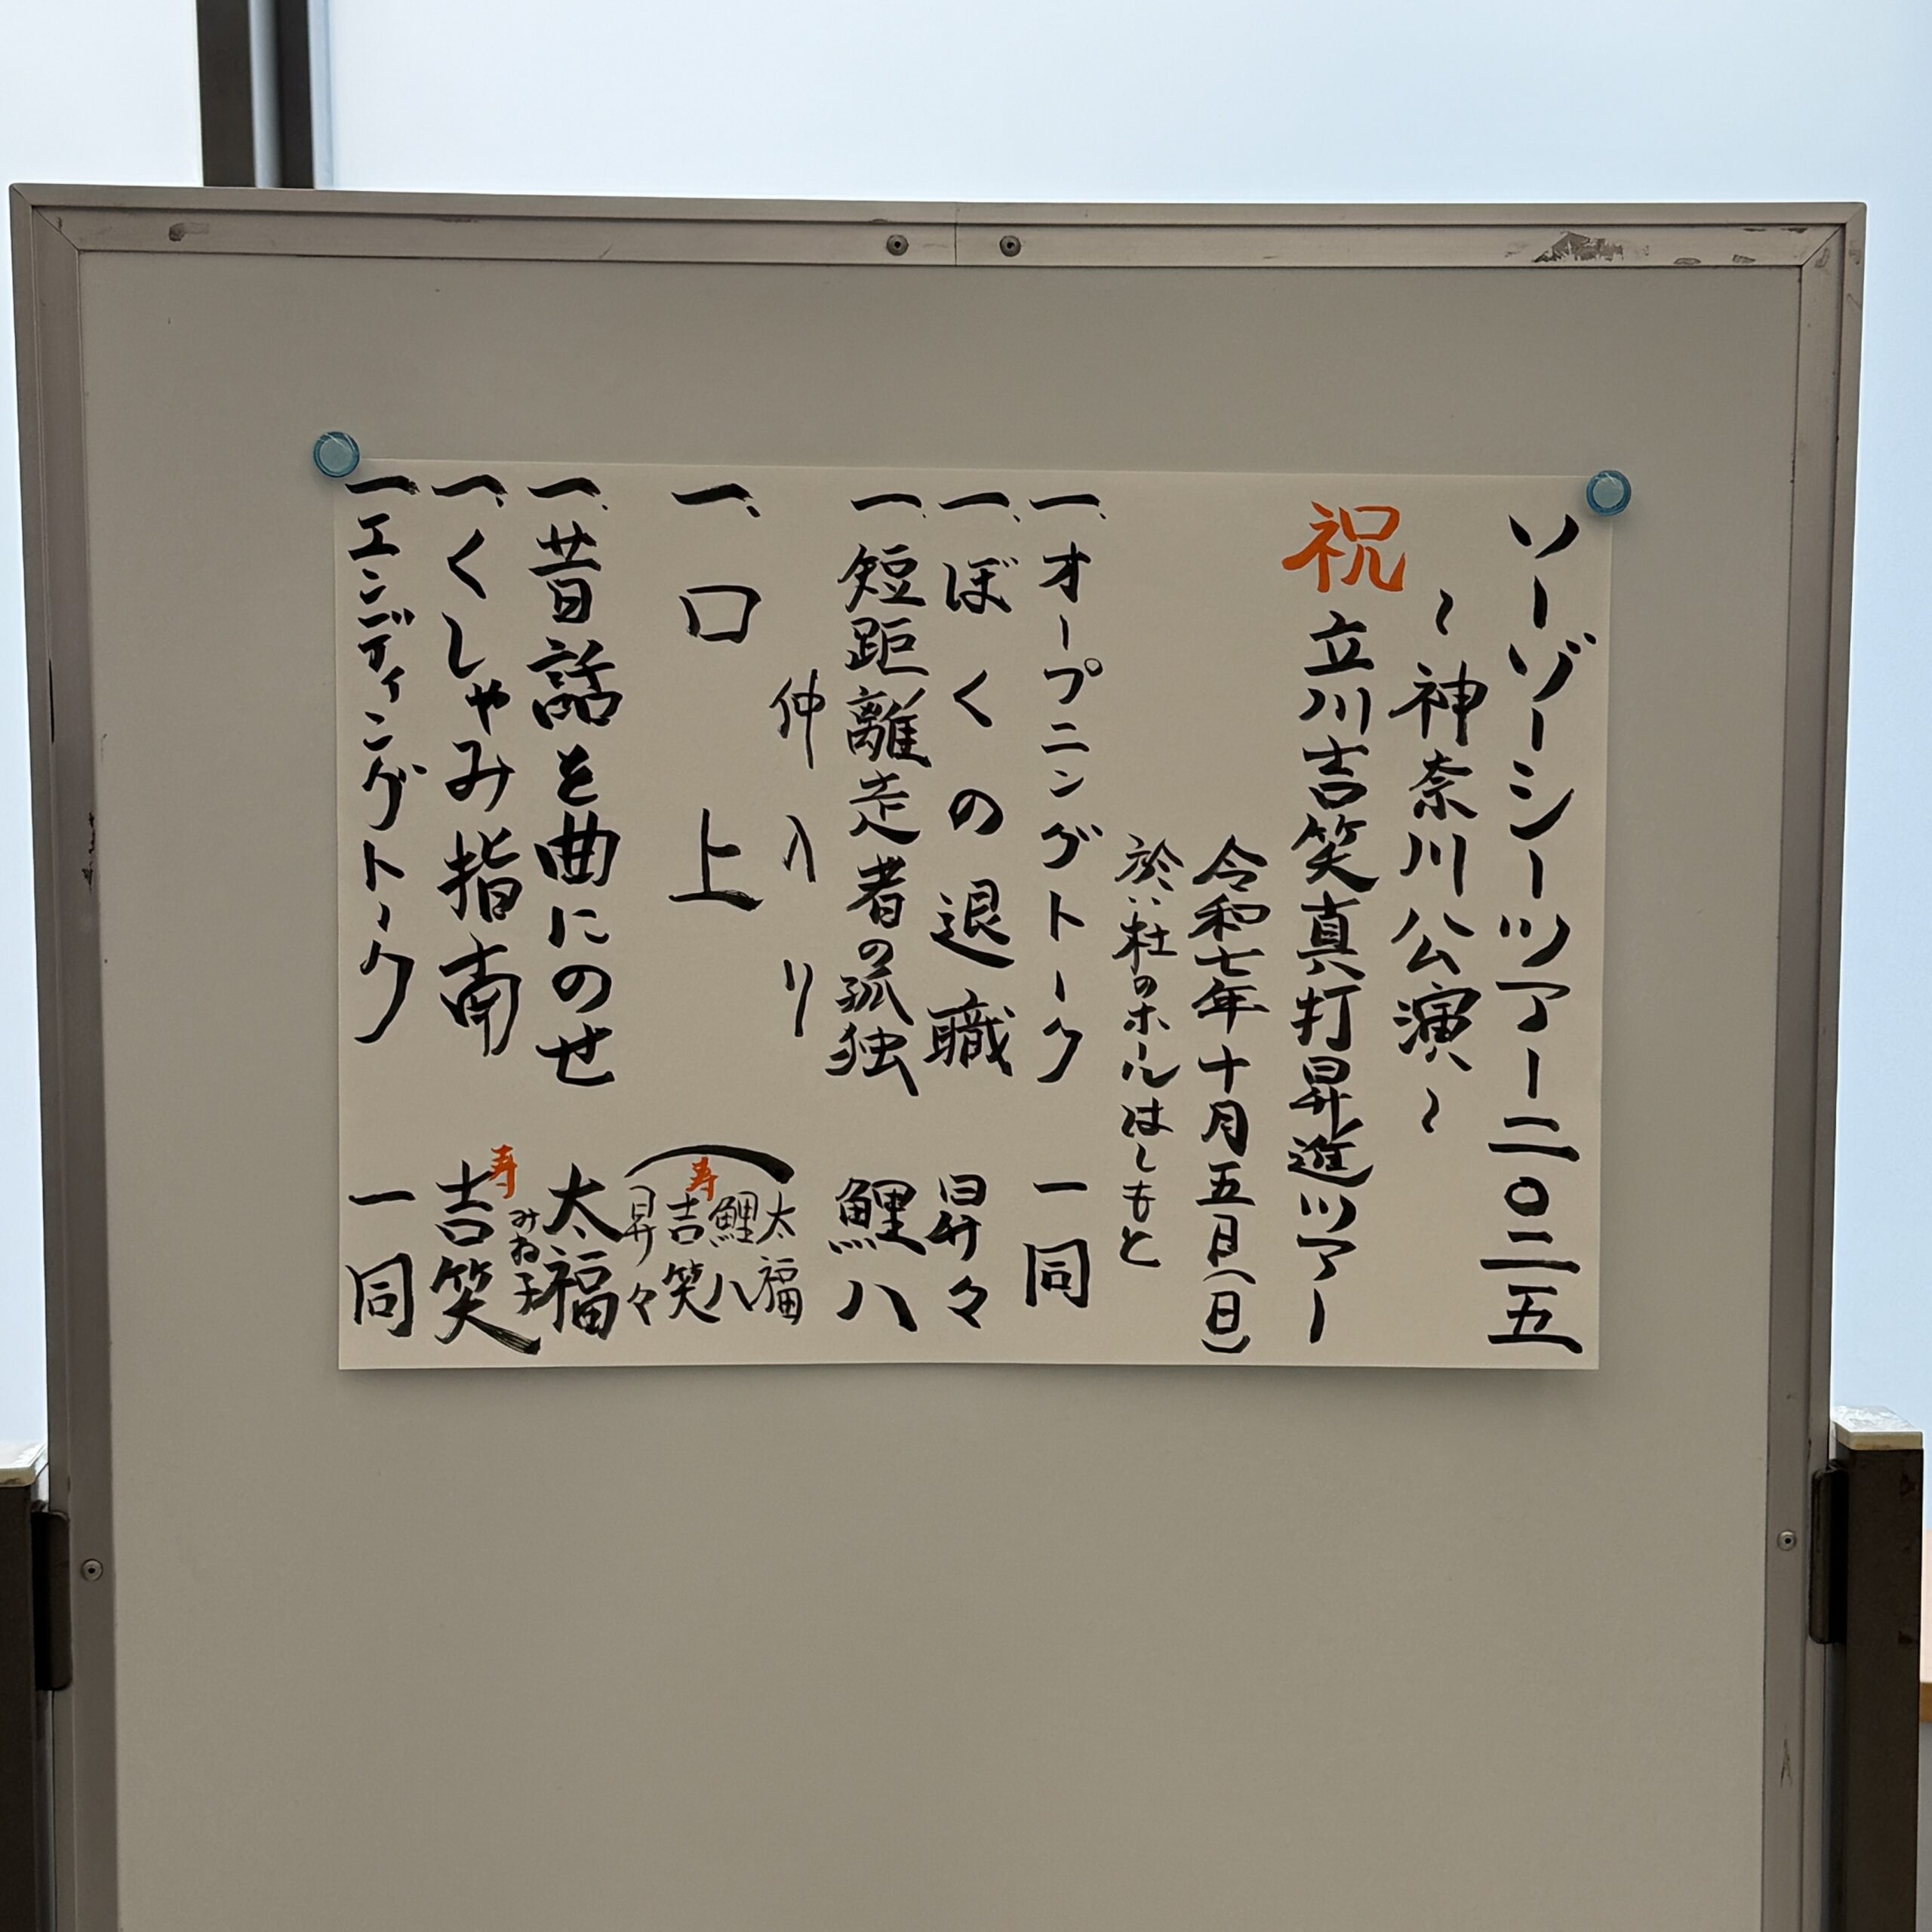 ソーゾーシーツアー二〇二五
～神奈川公演～
祝 立川吉笑真打昇進ツアー
令和七年十月五日(日)
於:杜のホールはしもと
一、オープニングトーク 一同
一、ぼくの退職 昇々
一、短距離走者の孤独 鯉八
仲入り
一、口上 太福 鯉八 寿 吉笑 昇々
一、昔話を曲にのせ 太福 みね子
一、くしゃみ指南 寿 吉笑
一、エンディングトーク 一同